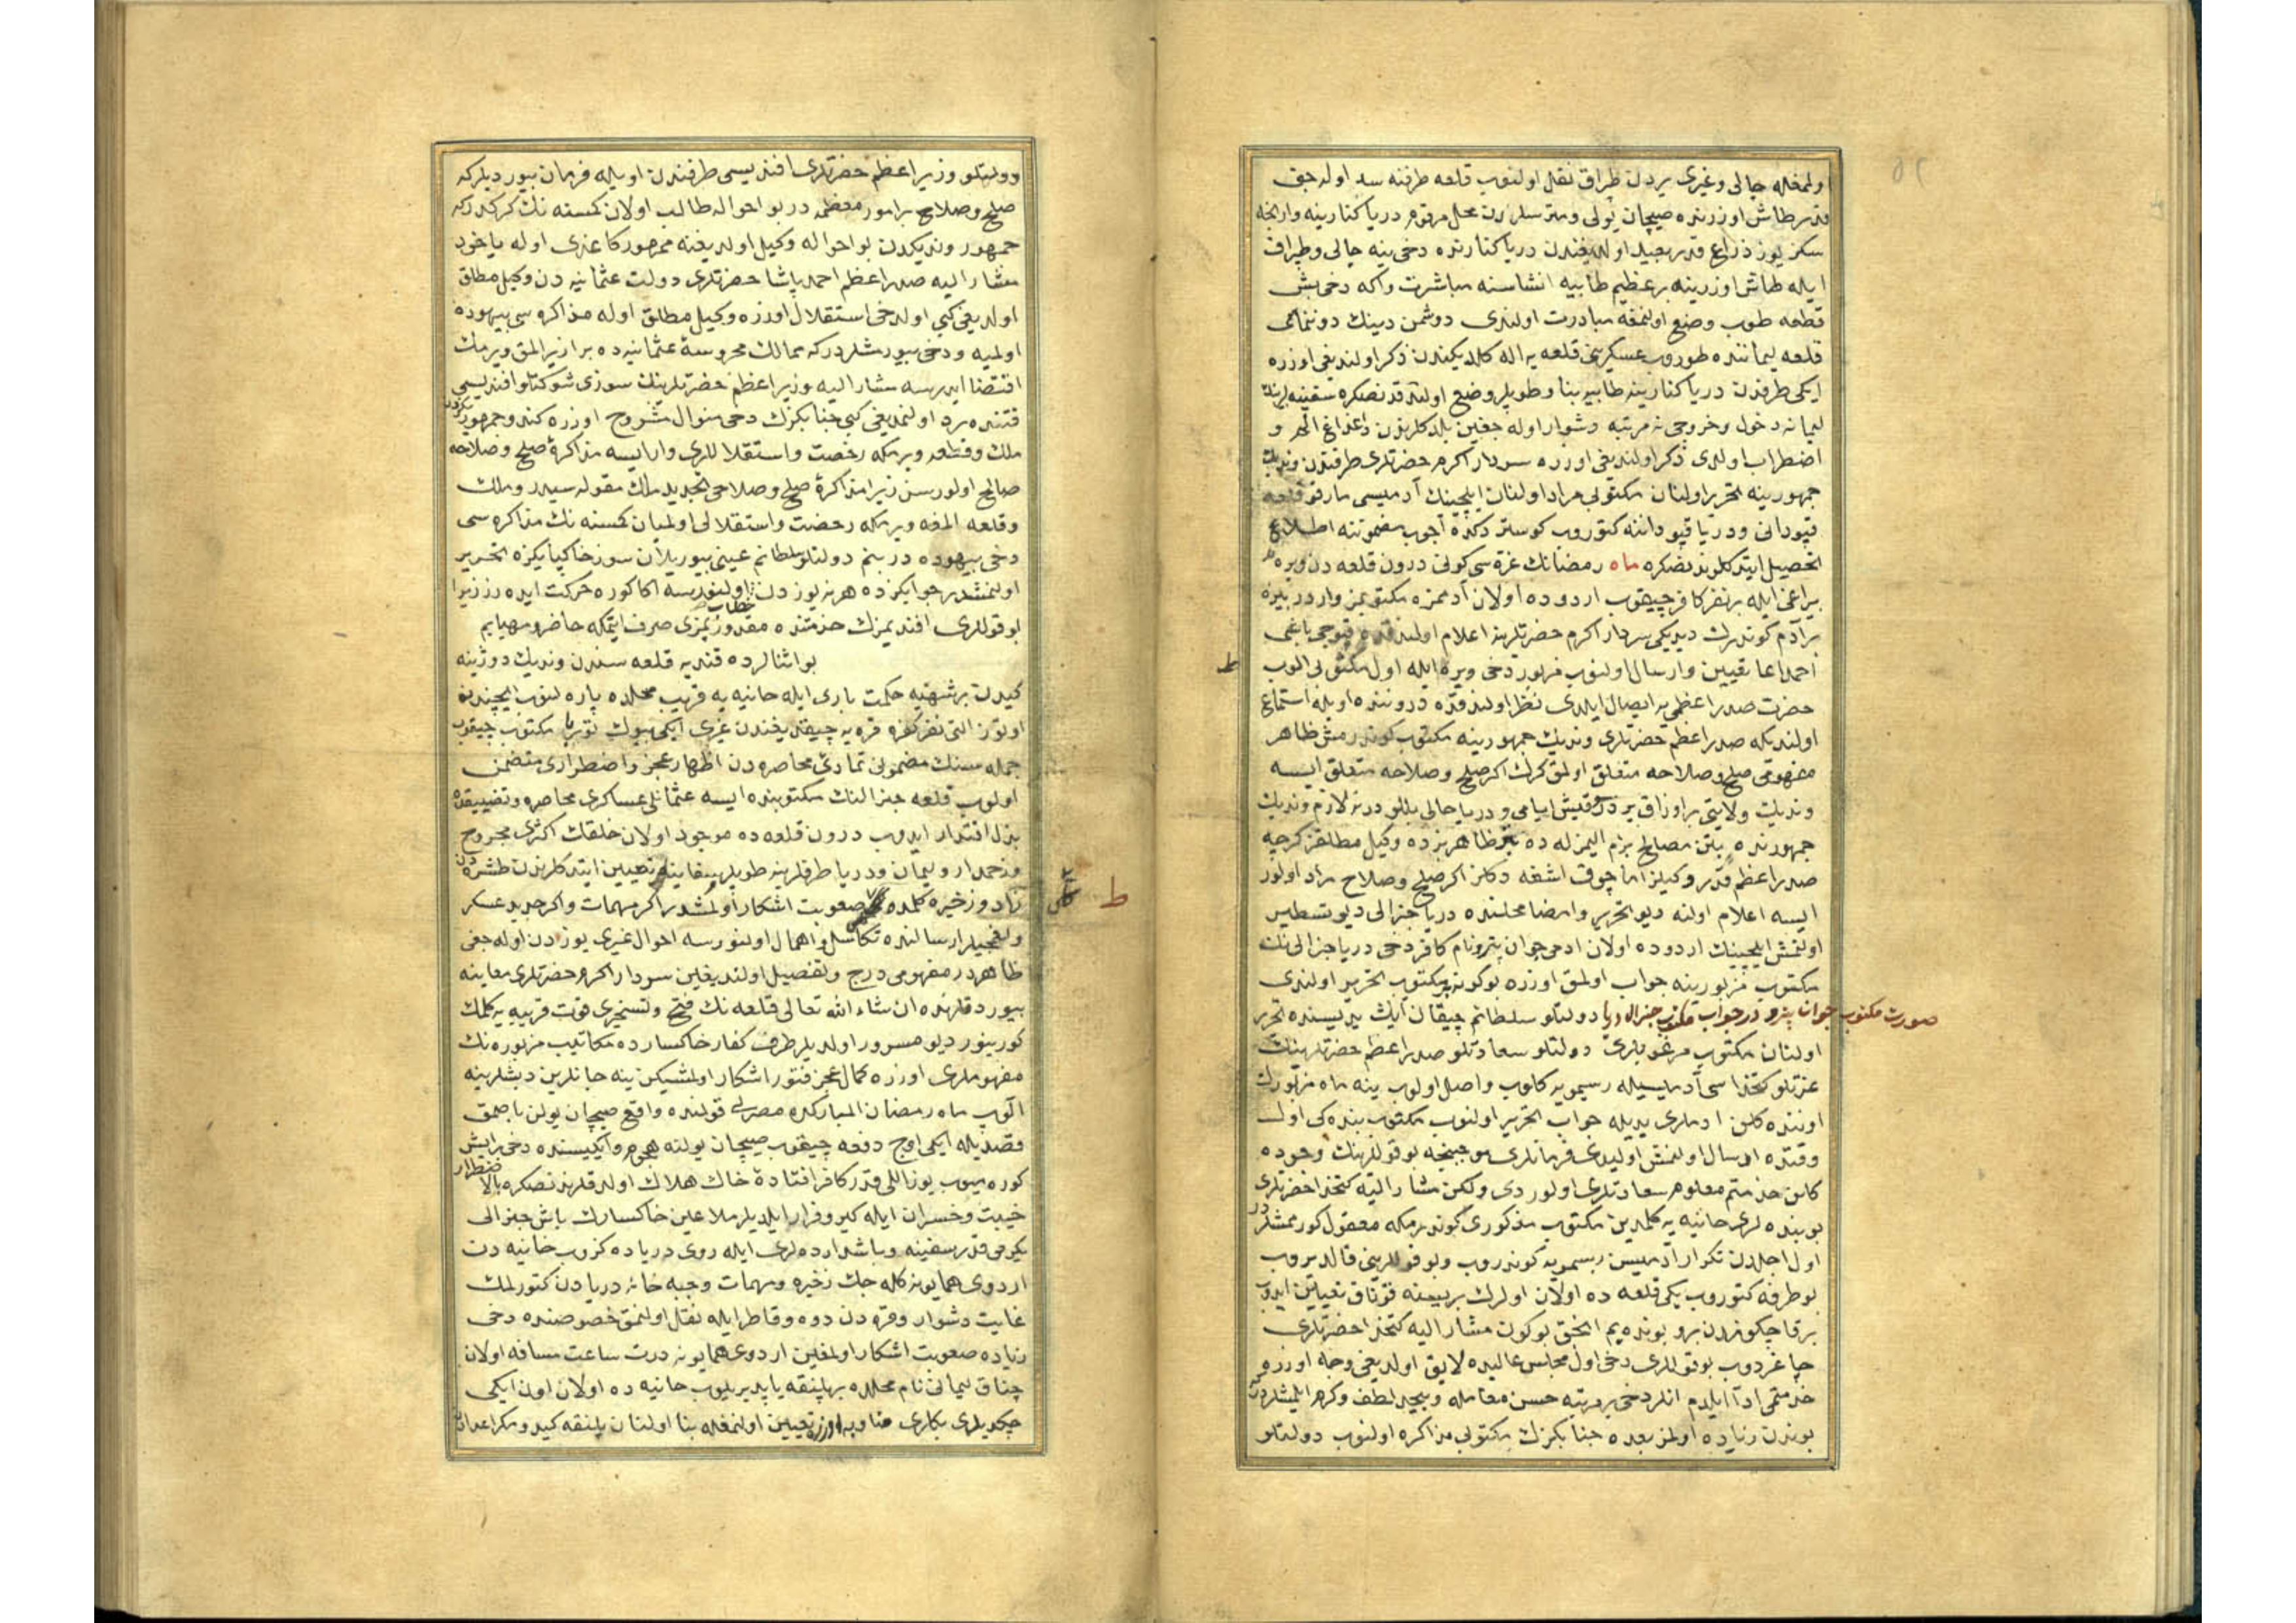 اولمغله چالی وغیری یردن طپراق نقل اولنوب قلعه طرفنه سد اوله جق
قدر طاش اوزرنده صیچان یولی ومترسلردن محل مرقوم دریا کنارینه وارنجه
سکز یوز ذراع قدر بعید اولدیغندن دریا کنارنده دخی ینه چالی وطپراق
ایله طاش اوزرینه بر عظیم طابیه انشاسنه مباشرت واکه دخی بش
قطعه طوپ وضع اولنمغه مبادرت اولندی دوشمن دینک دوننماسی
قلعه لیماننده طوروب عسکرینی قلعه یه اله کلدیکندن ذکر اولندیغی اوزره
ایکی طرفدن دریا کنارینه طابیه بنا وطوپلر وضع اولندقدنصکره سفینه لرینک
لیمانه دخول وخروجی نه مرتبه دشوار اوله جغین بلدکلرندن داغ الم و
اضطراب اولدی ذکر اولندیغی اوزره سردار اکرم حضرتلری طرفندن وندیک
جمهورینه تحریر اولنان مکتوبی مراد اولنان ایلچینک آدمیسی مارقو قلعه
قپودانی ودریا قپوداننه کتوروب کوستردکده آچوب مضموننه اطلاع
تحصیل ایتدکلرندنصکره ماه رمضانک غره سی کونی درون قلعه دن ویره
بیراغی ایله بر نفر کافر چیقوب اردوده اولان آدممزه مکتوبمز واردر بیزه
بر آدم کوندرک دیدیکی سردار اکرم حضرتلرینه اعلام اولندقده قپوجی باشی
احمد اغا تعیین وارسال اولنوب مزبور دخی ویره ایله اول مکتوبی الوب
حضرت صدر اعظمی یه ایصال ایلدی نظر اولندقده دروننده اویله استماع
اولندیکه صدر اعظم حضرتلری وندیک جمهورینه مکتوب کوندرمش ظاهر
مفهومی صلح وصلاحه متعلق اولمق کرک اکر صلح وصلاحه متعلق ایسه
وندیک ولایتی بر اوزاق یردر قیش ایامی ودریا حالی بللودر نه لازم وندیک
جمهورنده بتن مصالح بزم الیمزله ده بتر ظاهر بزده وکیل مطلقز کرچه
صدر اعظم قدر وکیلز اما چوق اشغه دکلز اکر صلح وصلاح مراد اولور
ایسه اعلام اولنه دیو تحریر وامضا محلنده دریا جنرالی دیو تسطیر
اولنمش ایلچینک اردوده اولان ادمی جوان پترو نام کافر دخی دریا جنرالی نک
مکتوب مزبورینه جواب اولمق اوزره بوکونه مکتوب تحریر اولندی
صورت مکتوب جوان پترو در جواب مکتوب جنرال دریا دولتلو سلطانم چیقان آیک یدیسنده تحریر
اولنان مکتوب مرغوبلری دولتلو سعادتلو صدر اعظم حضرتلرینک
عزتلو کتخداسی آدمیسیله رسمویه کلوب واصل اولوب ینه ماه مزبورک
اوننده کلن ادملری یدیله جواب تحریر اولنوب مکتوب بنده کی اول
وقتده ارسال اولنمش اولیدی فرمانلری موجبنجه بو قوللرینک وجوده
کلن خدمتم معلوم سعادتلری اولوردی ولکن مشار الیه کتخدا حضرتلری
بو بنده لری حانیه یه کلمدین مکتوب مذکوری کوندرمکه معقول کورممشلر
اول اجلدن تکرار آدمیسن رسمویه کوندروب وبو قوللرینی قالدیروب
بو طرفه کتوروب یکی قلعه ده اولان اولرک بریسنه قوناق تعیین ایدوب
بر قاچ کوندن برو بونده یم انجق بوکون مشار الیه کتخدا حضرتلری
چاغردوب بو قوللری دخی اول مجلس عالیده لایق اولدیغی وجه اوزره
خدمتمی ادا ایلدم انلر دخی بر مرتبه حسن معامله وبیحد لطف وکرم ایلمشلردر
بوندن زیاده اولمز بعده جنابکزک مکتوبی مذاکره اولنوب دولتلو
دولتلو وزیر اعظم حضرتلری افندیسی طرفندن اویله فرمان بیوردیلر که
صلح وصلاح بر امور معظمه در بو احواله طالب اولان کمسنه نک کرکدر که
جمهور وندیکدن بو احواله وکیل اولدیغنه ممهور کاغدی اوله یاخود
مشار الیه صدر اعظم احمد پاشا حضرتلری دولت عثمانیه دن وکیل مطلق
اولدیغی کبی اول دخی استقلال اوزره وکیل مطلق اوله مذاکره سی بیهوده
اولمیه ودخی بیورمشلردر که ممالک محروسه عثمانیه ده بر از یر المق ویرمک
اقتضا ایدرسه مشار الیه وزیر اعظم حضرتلرینک سوزی شوکتلو افندیسی
قتنده رد اولنمدیغی کبی جنابکزک دخی منوال مشروح اوزره کندو جمهوریکزدن
ملک وقلعه ویرمکه رخصت واستقلاللری وار ایسه مذاکره صلح وصلاحه
صالح اولورسن زیرا مذاکره صلح وصلاحی تجدید ملک مقوله سیدر وملک
وقلعه المغه ویرمکه رخصت واستقلالی اولمیان کمسنه نک مذاکره سی
دخی بیهوده در بنم دولتلو سلطانم عینی بیوریلان سوز خاکپایکزه تحریر
اولنمشدر جوابکزده هر نه یوزدن خطاب اولنورسه اکا کوره حرکت ایده رز زیرا
بو قوللری افندیمزک خدمتنده مقدورمزی صرف ایتمکه حاضر ومهیایم
بو اثنالرده قندیه قلعه سندن وندیک دوژینه
کیدن بر شهتیه حکمت باری ایله حانیه یه قریب محلده پاره لنوب ایچندن
اوتوز التی نفر کفره قره یه چیقدیغندن غیری ایکی بیوک توربا مکتوب چیقوب
جمله سنک مضمونی تمادی محاصره دن اظهار عجز واضطراری متضمن
اولوب قلعه جنرالنک مکتوبنده ایسه عثمانلی عساکری محاصره وتضییقده
بذل اقتدار ایدوب درون قلعه ده موجود اولان خلقک اکثری مجروح
وزخمدار ولیمان ودریا طرفلرینه طوپلر تعیین ایتدکلرندن طشره دن
زاد وزخیره کلمده صعوبت اشکار اولمشدر اکر مهمات واکر جدید عسکر
وتعجیلا ارسالنده تکاسل واهمال اولنورسه احوال غیری یوزدن اوله جغی
ظاهردر مفهومی درج وتفصیل اولندیغین سردار اکرم حضرتلری معاینه
بیوردقلرنده ان شاء الله تعالی قلعه نک فتح وتسخیری قوت قریبه یه کلمک
کورینور دیو مسرور اولدیلر طرف کفار خاکسارده مکاتیب مزبوره نک
مفهوملری اوزره کمال عجز فتور اشکار اولمشیکن ینه جانلرین دیشلرینه
الوب ماه رمضان المبارکده مصرلی قولنده واقع صیچان یولن باصمق
قصدیله ایکی اوچ دفعه چیقوب صیچان یولنه هجوم وایکیسنده دخی بر ایش
کوره میوب یوز اللی قدر کافر افتاده خاک هلاک اولدقلرندنصکره بالاضطرار
خیبت وخسران ایله کیرو فرار ایلدیلر ملاعین خاکسارک باش جنرالی
یکرمی قدر سفینه وباشدارده لری ایله روی دریاده کزوب حانیه دن
اردوی همایونه کله جک زخیره ومهمات وجبه خانه دریادن کتورلمک
غایت دشوار وقره دن دوه وقاطر ایله نقل اولنمق خصوصنده دخی
زیاده صعوبت اشکار اولمغین اردوی همایونه درت ساعت مسافه اولان
چناق لیمانی نام محلده بر پلنقه یاپدیریلوب حانیه ده اولان اون ایکی
چکدیرری بکلری مناوبه اوزره تعیین اولنمغله بنا اولنان پلنقه کیدوب مکر اعدادن